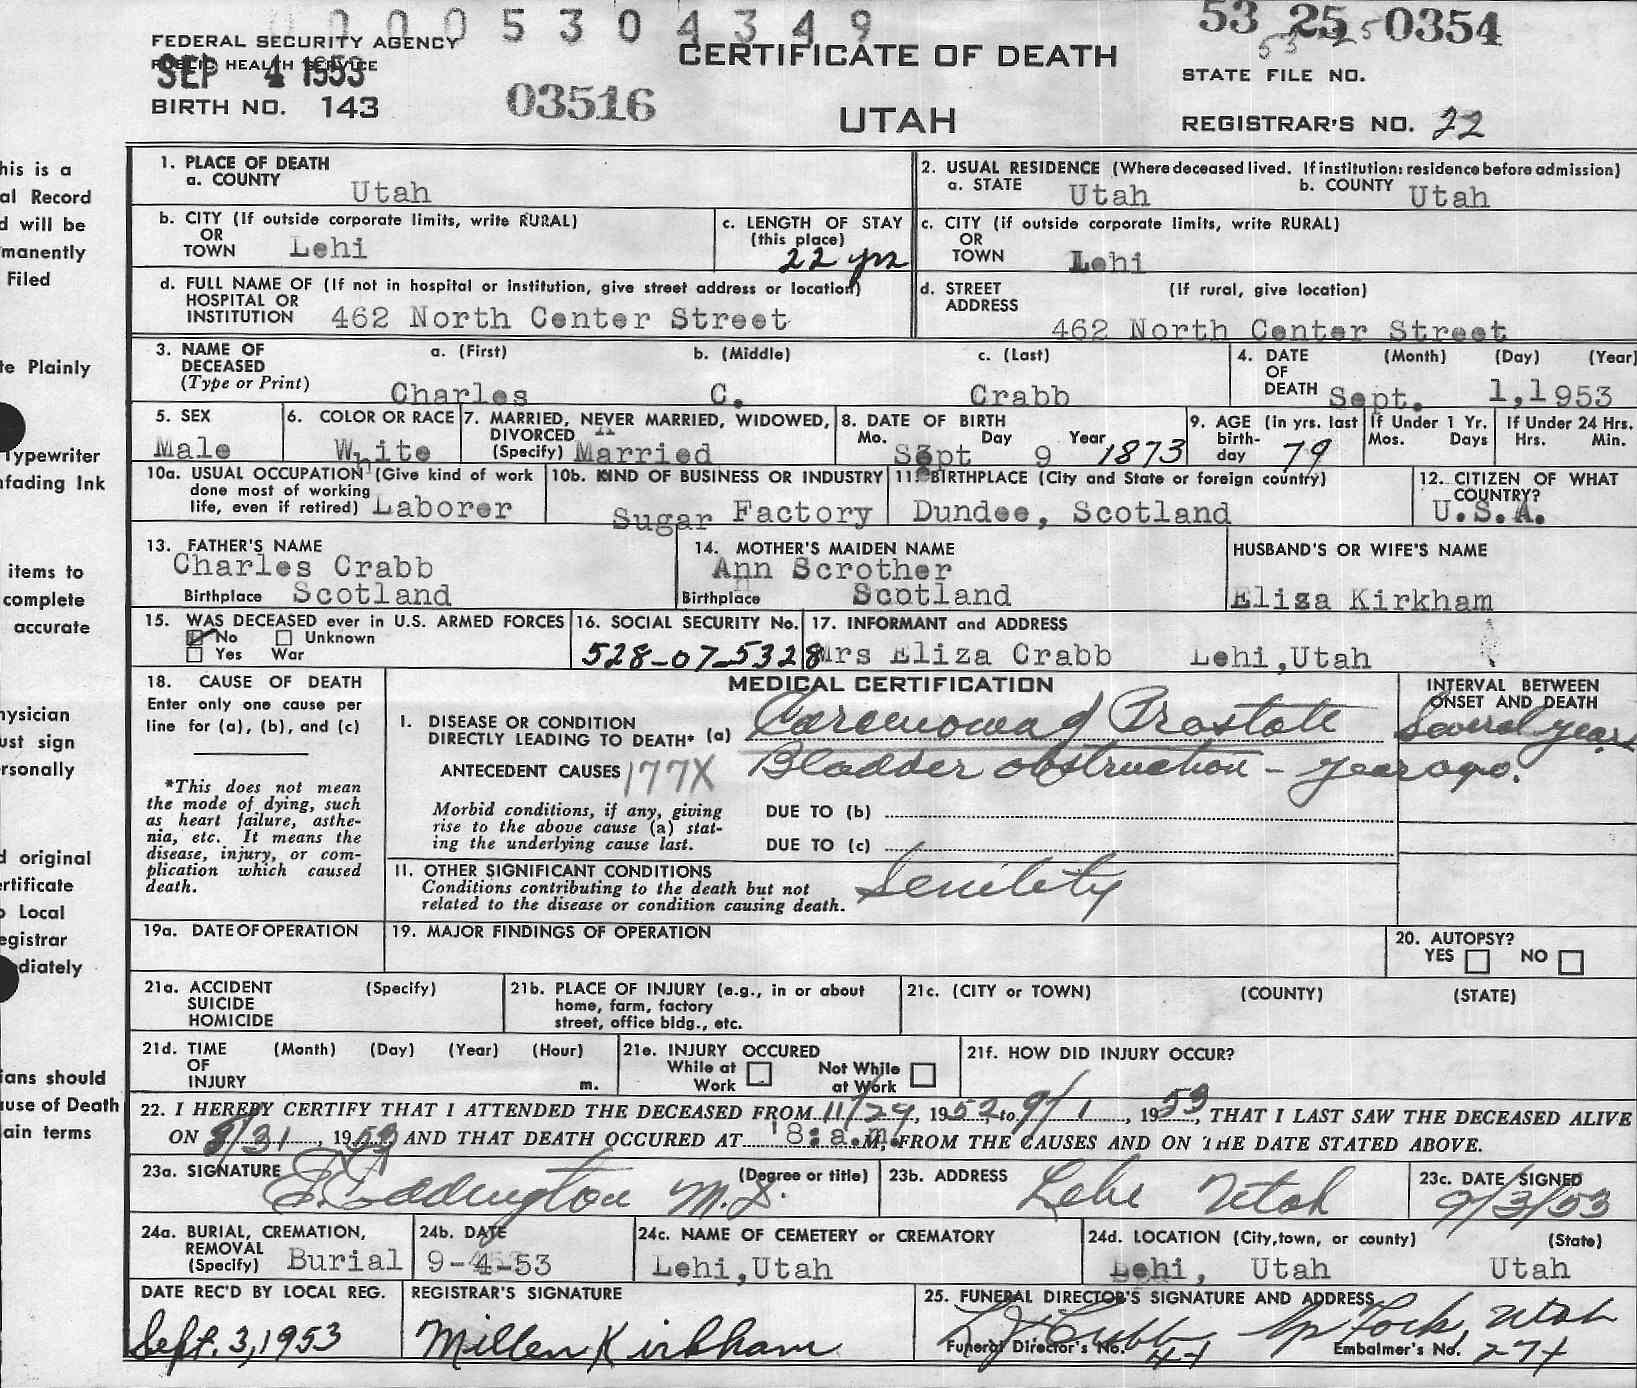 0000 5304349
53 25 0354
FEDERAL SECURITY AGENCY
PUBLIC HEALTH SERVICE
SEP 4 1953
CERTIFICATE OF DEATH
STATE FILE NO.
BIRTH NO. 143
03516
UTAH
REGISTRAR'S NO. 22
1. PLACE OF DEATH
a. COUNTY Utah
2. USUAL RESIDENCE (Where deceased lived. If institution: residence before admission)
a. STATE Utah b. COUNTY Utah
b. CITY (If outside corporate limits, write RURAL)
OR
TOWN Lehi
c. LENGTH OF STAY
(this place)
22 yrs
c. CITY (if outside corporate limits, write RURAL)
OR
TOWN Lehi
d. FULL NAME OF (If not in hospital or institution, give street address or location)
HOSPITAL OR
INSTITUTION 462 North Center Street
d. STREET (If rural, give location)
ADDRESS
462 North Center Street
3. NAME OF DECEASED (Type or Print)
a. (First) b. (Middle) c. (Last)
Charles C. Crabb
4. DATE OF DEATH (Month) (Day) (Year)
Sept. 1,1953
5. SEX
Male
6. COLOR OR RACE
White
7. MARRIED, NEVER MARRIED, WIDOWED,
DIVORCED
(Specify) Married
8. DATE OF BIRTH
Mo. Day Year
Sept 9 1873
9. AGE (in yrs. last
birth-
day 79
If Under 1 Yr.
Mos. Days
If Under 24 Hrs.
Hrs. Min.
10a. USUAL OCCUPATION (Give kind of work
done most of working
life, even if retired) Laborer
10b. KIND OF BUSINESS OR INDUSTRY
Sugar Factory
11. BIRTHPLACE (City and State or foreign country)
Dundee, Scotland
12. CITIZEN OF WHAT
COUNTRY?
U.S.A.
13. FATHER'S NAME
Charles Crabb
Birthplace Scotland
14. MOTHER'S MAIDEN NAME
Ann Scrother
Birthplace Scotland
HUSBAND'S OR WIFE'S NAME
Eliza Kirkham
15. WAS DECEASED ever in U.S. ARMED FORCES
No Unknown
Yes War
16. SOCIAL SECURITY No.
528-07-5328
17. INFORMANT and ADDRESS
Mrs Eliza Crabb Lehi,Utah
18. CAUSE OF DEATH
Enter only one cause per
line for (a), (b), and (c)
*This does not mean
the mode of dying, such
as heart failure, asthe-
nia, etc. It means the
disease, injury, or com-
plication which caused
death.
MEDICAL CERTIFICATION
INTERVAL BETWEEN
ONSET AND DEATH
I. DISEASE OR CONDITION
DIRECTLY LEADING TO DEATH* (a) Carcinoma of Prostate Several years
ANTECEDENT CAUSES 177X Bladder obstruction - year ago.
Morbid conditions, if any, giving
rise to the above cause (a) stat-
ing the underlying cause last.
DUE TO (b)
DUE TO (c)
II. OTHER SIGNIFICANT CONDITIONS
Conditions contributing to the death but not
related to the disease or condition causing death.
Senility
19a. DATE OF OPERATION
19. MAJOR FINDINGS OF OPERATION
20. AUTOPSY?
YES NO
21a. ACCIDENT (Specify)
SUICIDE
HOMICIDE
21b. PLACE OF INJURY (e.g., in or about
home, farm, factory
street, office bldg., etc.
21c. (CITY or TOWN) (COUNTY) (STATE)
21d. TIME (Month) (Day) (Year) (Hour)
OF
INJURY m.
21e. INJURY OCCURED
While at Work Not While at Work
21f. HOW DID INJURY OCCUR?
22. I HEREBY CERTIFY THAT I ATTENDED THE DECEASED FROM 11/29, 1952, to 9/1, 1953, THAT I LAST SAW THE DECEASED ALIVE
ON 8/31, 1953 AND THAT DEATH OCCURED AT 8: a.m. M, FROM THE CAUSES AND ON THE DATE STATED ABOVE.
23a. SIGNATURE (Degree or title)
Eddington M.D.
23b. ADDRESS
Lehi Utah
23c. DATE SIGNED
9/3/53
24a. BURIAL, CREMATION,
REMOVAL
(Specify) Burial
24b. DATE
9-4-53
24c. NAME OF CEMETERY or CREMATORY
Lehi,Utah
24d. LOCATION (City,town, or county) (State)
Lehi, Utah Utah
DATE REC'D BY LOCAL REG.
Sept. 3, 1953
REGISTRAR'S SIGNATURE
Millen Kirkham
25. FUNERAL DIRECTOR'S SIGNATURE AND ADDRESS
Utah
Funeral Director's No. Embalmer's No.
his is a
al Record
d will be
manently
Filed
te Plainly
Typewriter
nfading Ink
items to
complete
accurate
hysician
ust sign
rsonally
d original
ertificate
o Local
egistrar
diately
ians should
ause of Death
ain terms